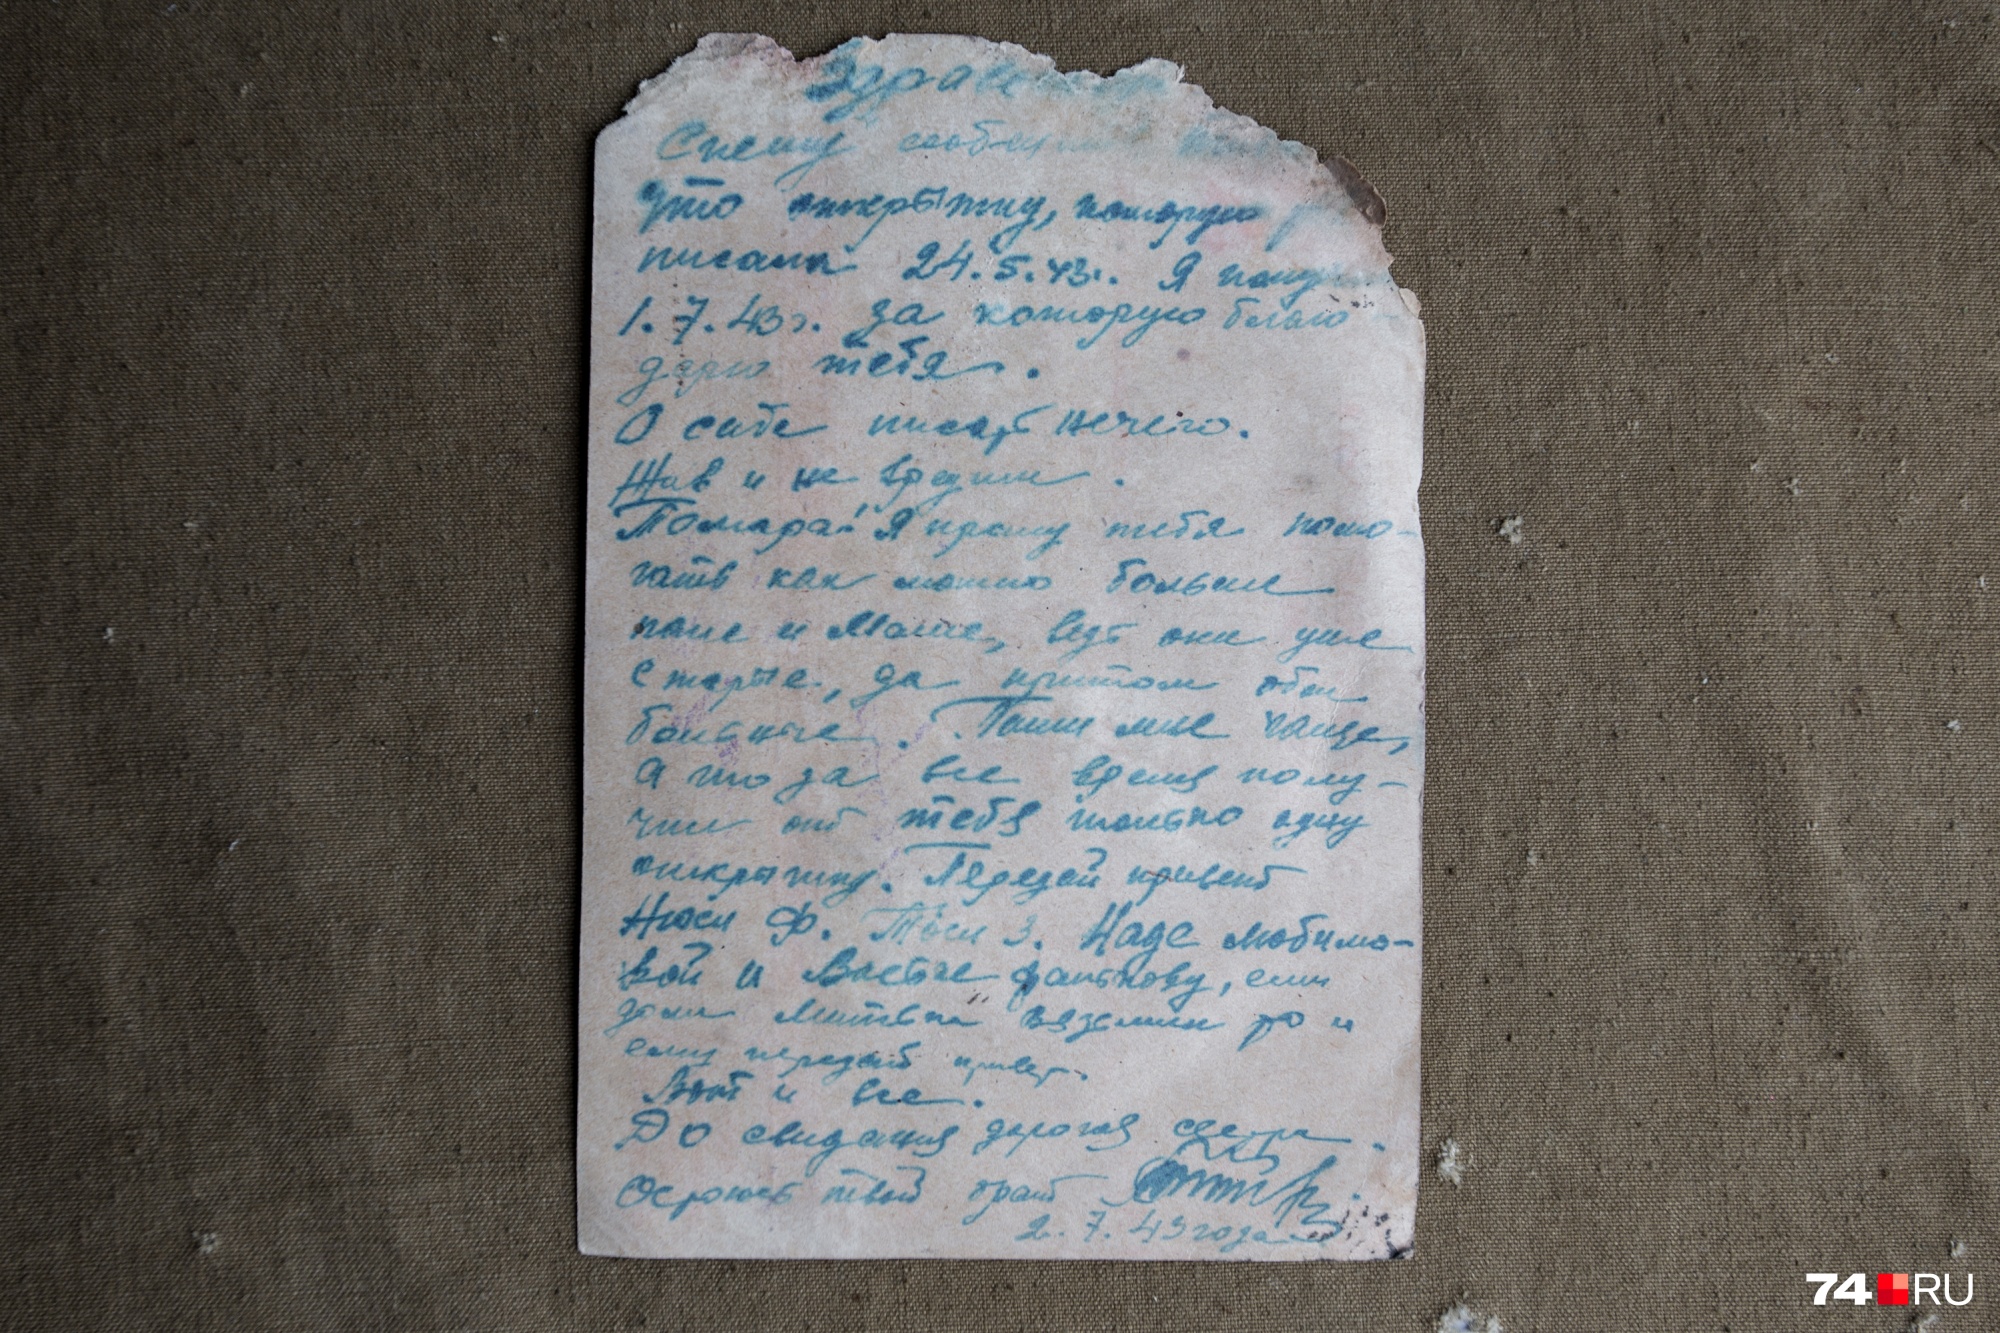 Спешу сообщить
что открытку, которую
писала 24.5.43г. Я получил
1.7.43г. за которую благо-
дарю тебя.
О себе писать нечего.
Жив и не вредим.
Томара! Я прошу тебя помо-
гать как можно больше
папе и Маме, ведь они уже
старые, да притом обои
больные. Пиши мне чаще,
а то за все время полу-
чил от тебя только одну
открытку. Передай привет
Нюси Ф. Тоси З. Наде Любимо-
вой и Фалькову, если
дома то и
ему передай привет.
Вот и все.
До свидания дорогая сестра.
Остаюсь твой брат
2.7.43 года
74.RU